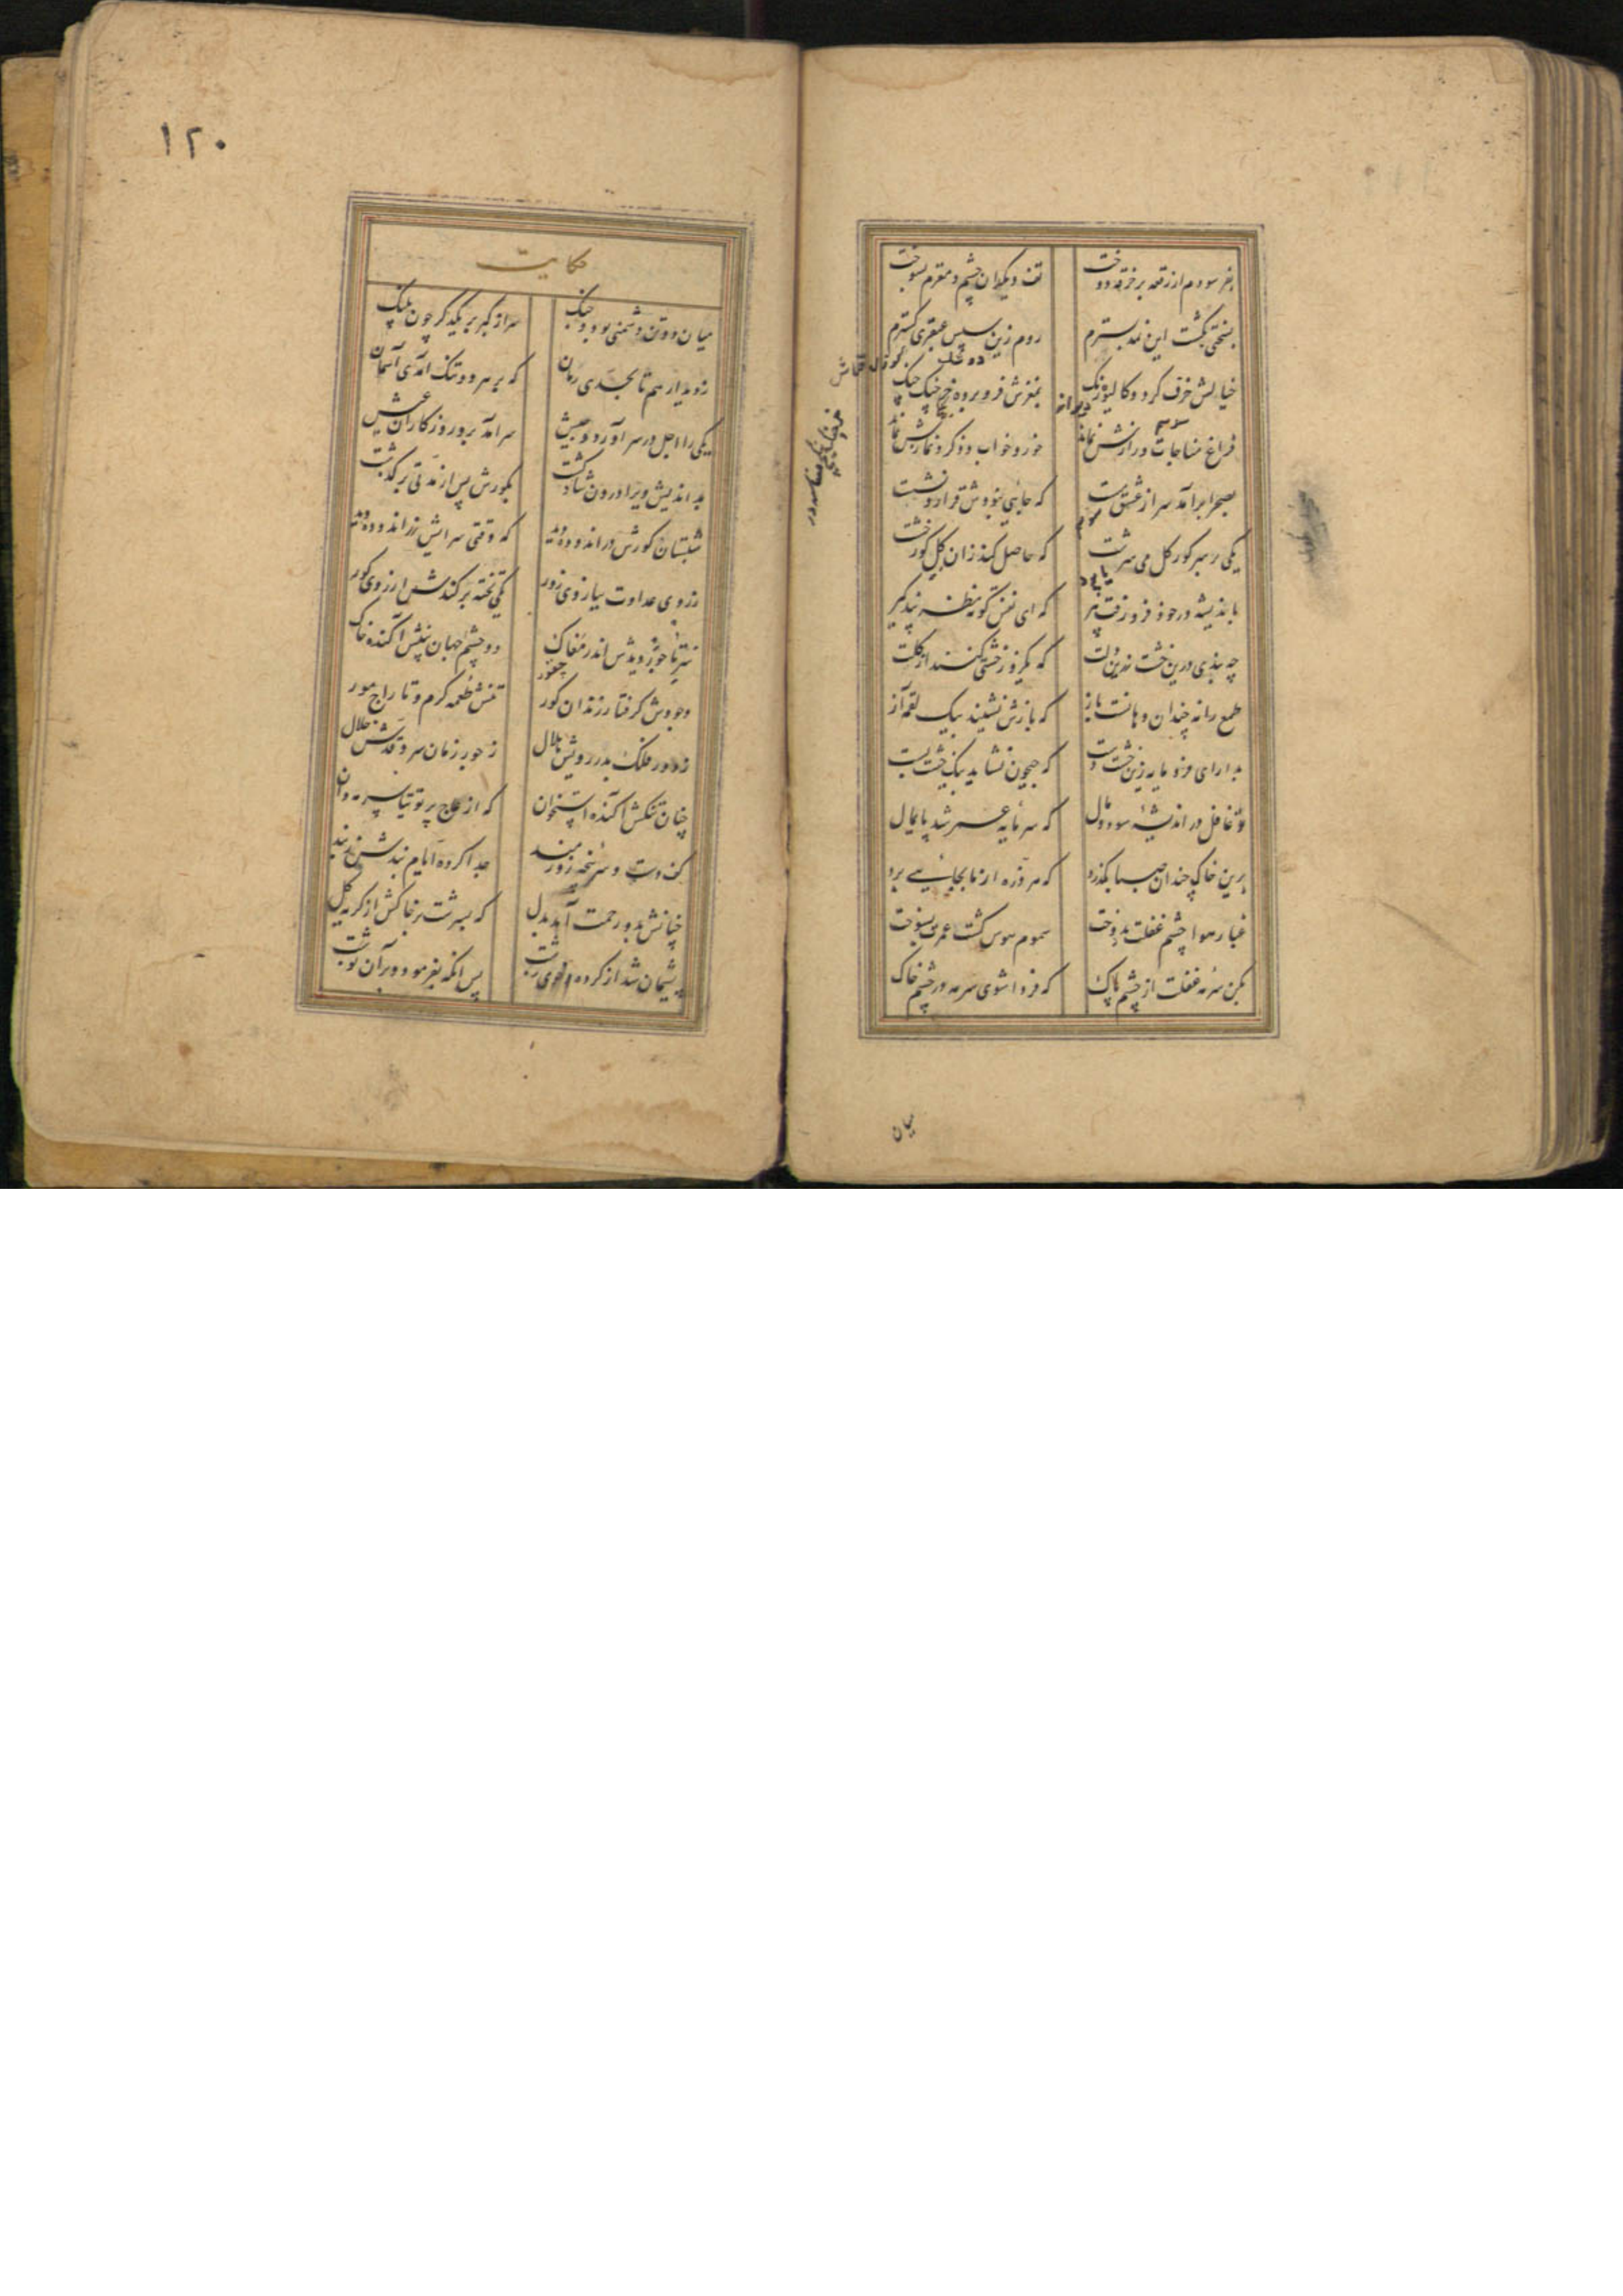 بفرسودم از رقعه بر خرقه دوخت
تف دیکدان چشم و مغزم بسوخت
بسختی بکشت این نمد بسترم
روم زین سپس عبقری کسترم
خیالش خرف کرد و کالیوه رنک
بمغزش فرو برده خرچنک چنک
فراغ مناجات و رازش نماند
خور و خواب و ذکر و نمازش نماند
بصحرا برآمد سر از عشوه مست
که جایی نبودش قرار نشست
یکی بر سر کور کل می سرشت
که حاصل کند زان کل کور خشت
باندیشه در خود فرو رفت پیر
که ای نفس کوته نظر پند کیر
چه بندی درین خشت زرین دلت
که یکروز خشتی کنند از کلت
طمع را نه چندان دهانست باز
که بازش نشیند بیک لقمه آز
بدار ای فرومایه زین خشت دست
که جیحون نشاید بیک خشت بست
تو غافل در اندیشه سود و مال
که سرمایه عمر شد پایمال
برین خاک چندان صبا بکذرد
که هر ذره از ما بجایی برد
غبار هوا چشم غفلت بدوخت
سموم هوس کشت عمرت بسوخت
بکن سرمه غفلت از چشم پاک
که فردا شوی سرمه در چشم خاک
میان
۱۲۰
حکایت
میان دو تن دشمنی بود و جنک
سر از کبر بر یکدکر چون پلنک
ز دیدار هم تا بحدی رمان
که بر هر دو تنک آمدی آسمان
یکی را اجل در سر آورد جیش
سر آمد برو روزکاران عیش
بد اندیش ویرا درون شاد کشت
بکورش پس از مدتی بر کذشت
شبستان کورش در اندوده دید
که وقتی سرایش زر اندوده دید
ز روی عداوت ببازوی زور
یکی تخته بر کندش از روی کور
سر تاجور دیدش اندر مغاک
دو چشم جهان بینش آکنده خاک
وجودش کرفتار زندان کور
تنش طعمه کرم و تاراج مور
ز دور فلک بدر رویش هلال
ز جور زمان سرو قدش خلال
چنان تنکش آکنده خاک استخوان
که از عاج پر توتیا سرمه دان
کف دست و سرپنجه زورمند
جدا کرده ایام بندش ز بند
چنانش برو رحمت آمد بدل
که بسرشت بر خاکش از کریه کل
پشیمان شد از کرده و خوی زشت
پس آنکه بفرمود و بر آن نوشت